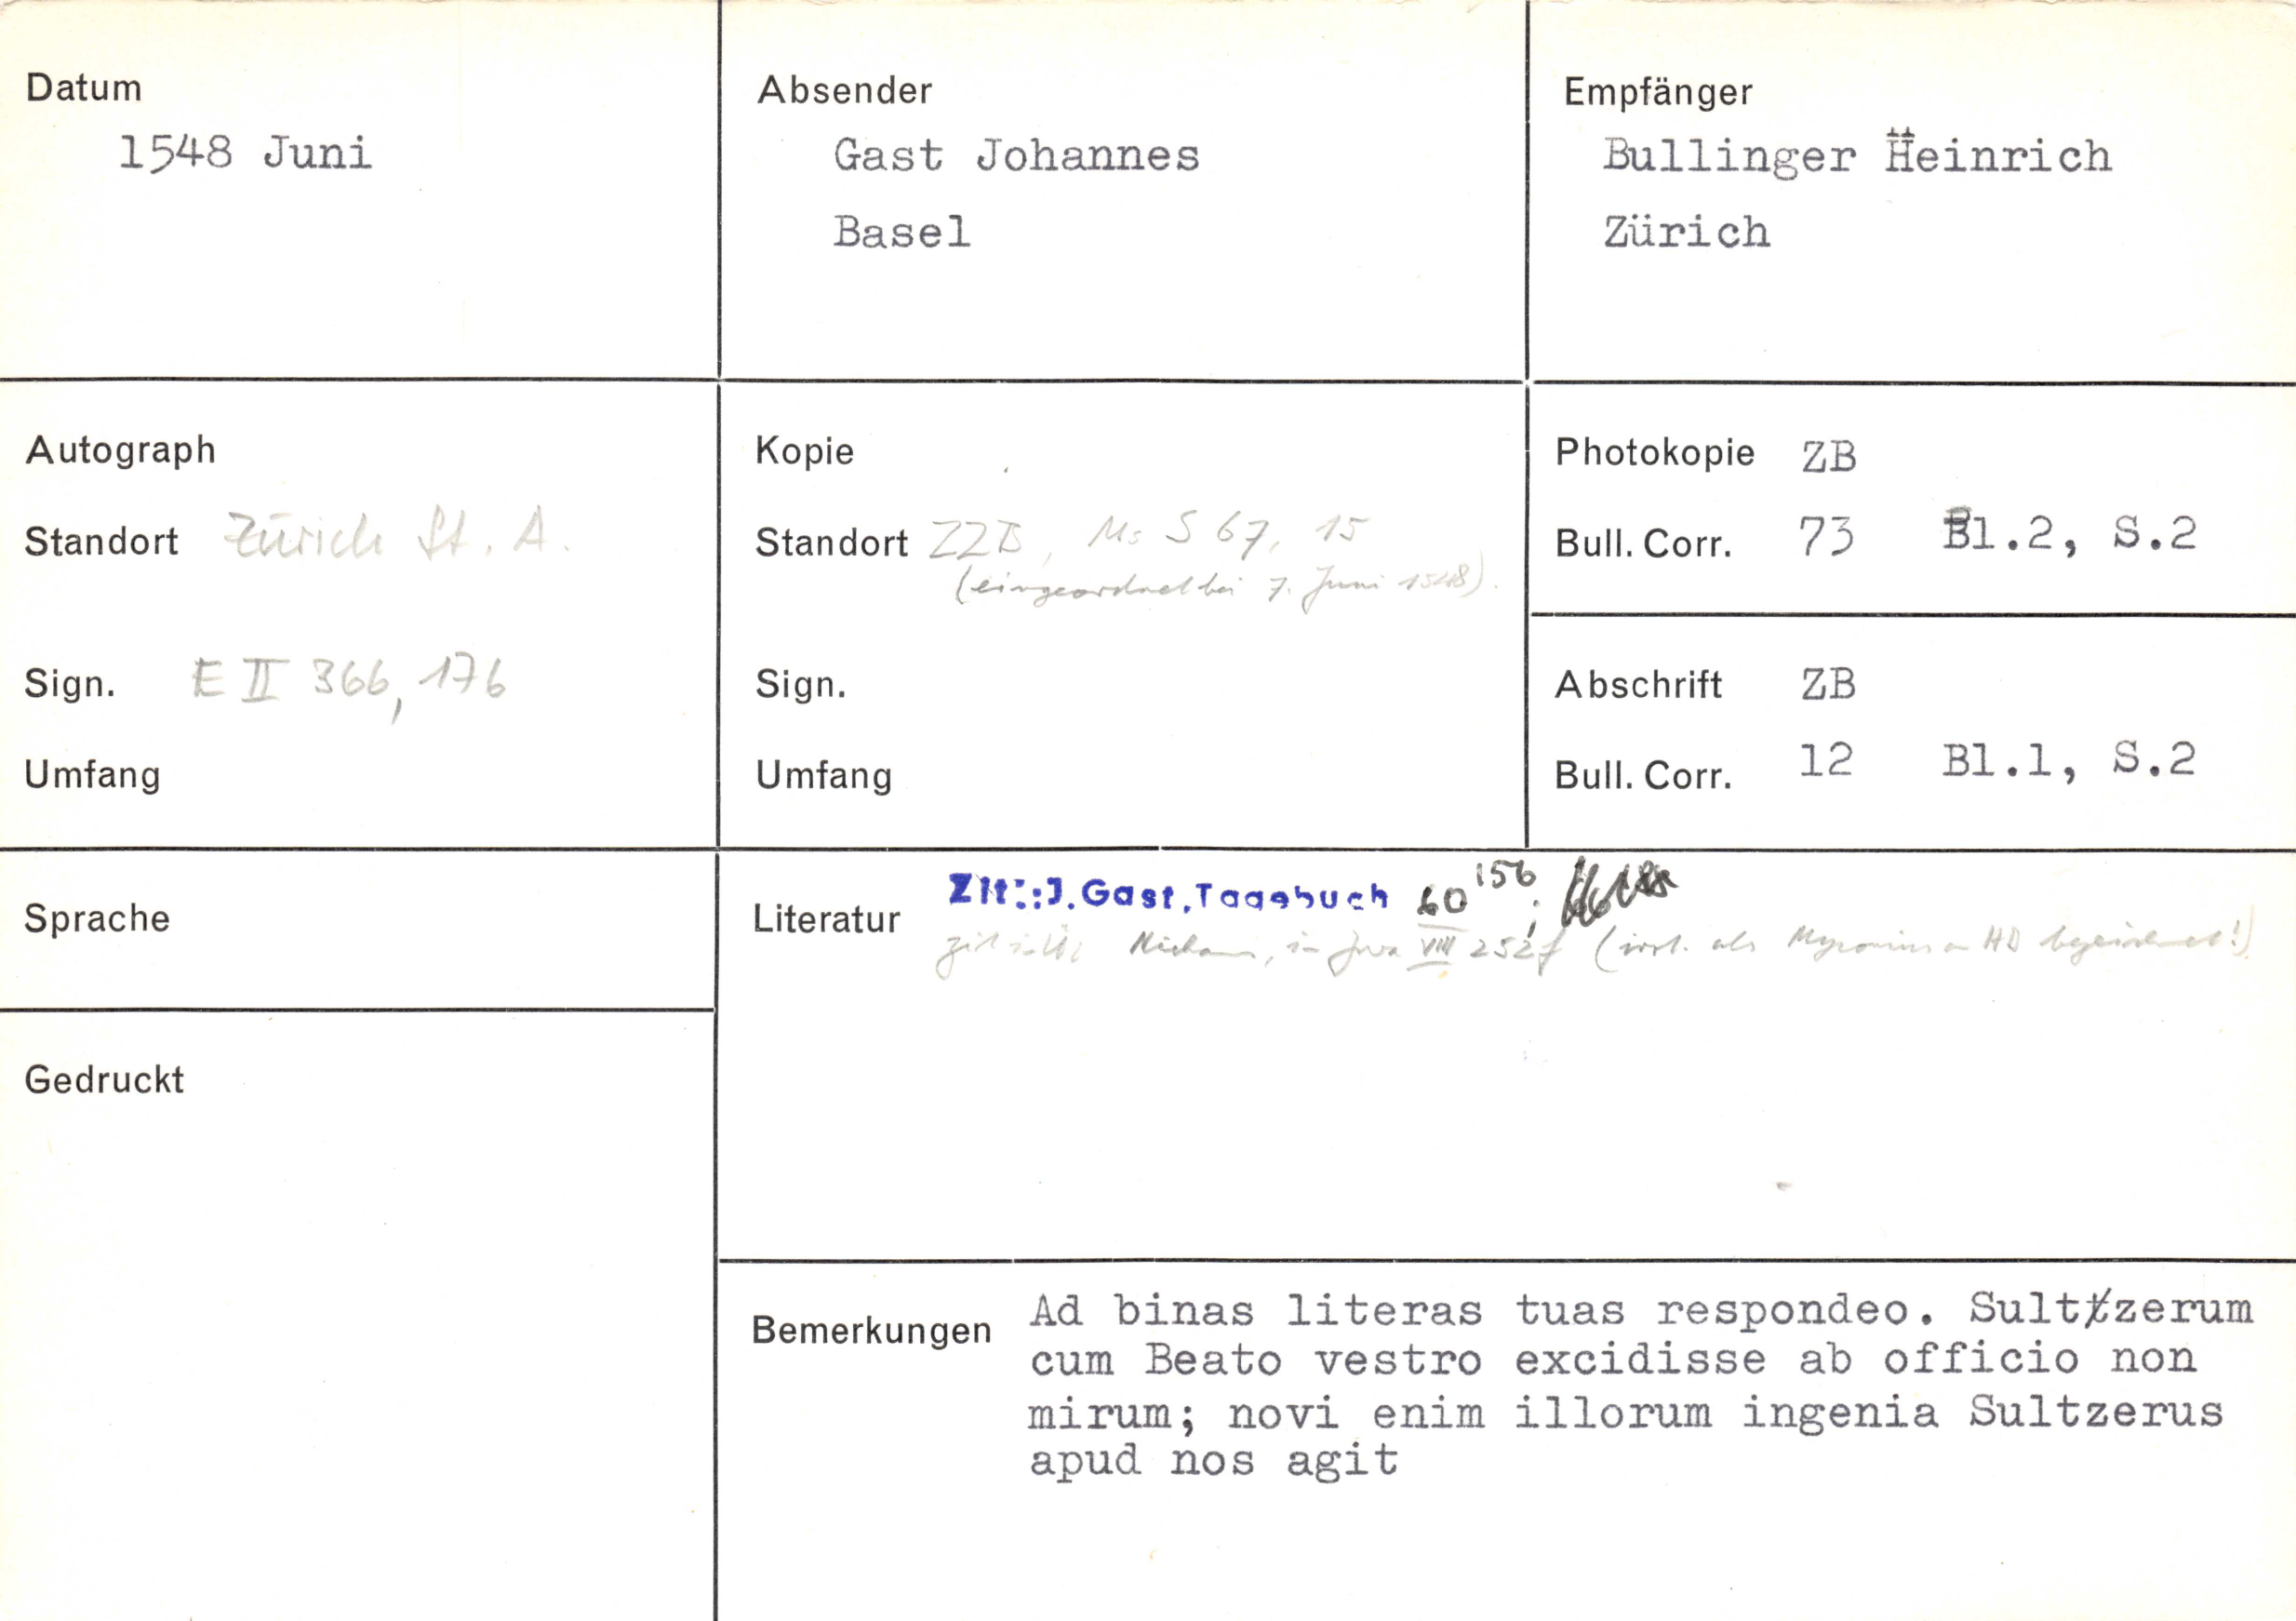 Datum
1548 Juni
Absender
Gast Johannes
Basel
Empfänger
Bullinger Heinrich
Zürich
Autograph
Standort Zürich St. A.
Sign. E II 366, 176
Umfang
Kopie
Standort ZZB, Ms S 67, 15
(eingeordnet bei 7. Juni 1548).
Sign.
Umfang
Photokopie ZB
Bull. Corr. 73 Bl.2, S.2
Abschrift ZB
Bull. Corr. 12 Bl.1, S.2
Sprache
Gedruckt
Literatur Zit.: J. Gast, Tagebuch 60 156;
in Zwa VIII 252f (irrt. als Myconius an HB bezeichnet!)
Bemerkungen Ad binas literas tuas respondeo. Sultzerum
cum Beato vestro excidisse ab officio non
mirum; novi enim illorum ingenia Sultzerus
apud nos agit